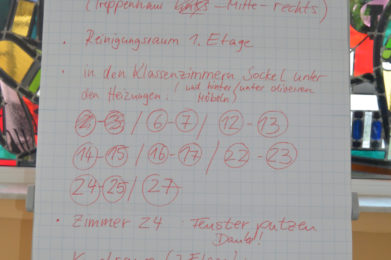 (Treppenhaus links - Mitte - rechts)
• Reinigungsraum 1. Etage
• in den Klassenzimmern Sockel unter
den Heizungen. (und hinter/unter
Möbeln)
2-3 / 6-7 / 12-13
14-15 / 16-17 / 22-23
24-25 / 27
• Zimmer 24 Fenster putzen
Danke!